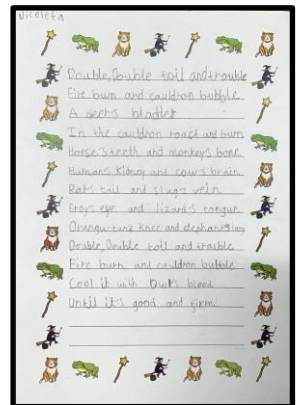 Nicoleta
Double, Double toil and trouble
Fire burn and cauldron bubble
A deers bladder
In the cauldron roast and burn
Horse's teeth and monkey's bone
Humans kidney and cow's brain
Rat's tail and slug's vein
Frog's eye and lizard's tongue
Orangu-tans knee and elephants
Double, Double toil and trouble
Fire burn and cauldron bubble
Cool it with Owl's blood
Until it's good and firm.